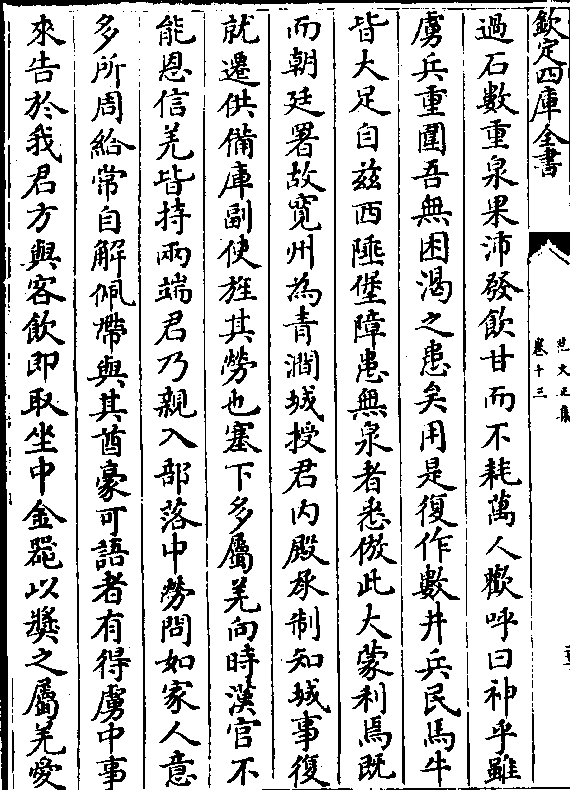 欽定四庫全書
范文正集
卷十三
過石數重泉果沛發飲甘而不耗萬人歡呼曰神乎雖
虜兵重圍吾無困渴之患矣用是復作數井兵民馬牛
皆大足自兹西陲堡障患無泉者悉倣此大蒙利焉既
而朝廷署故寛州為青澗城授君内殿承制知城事復
就遷供備庫副使旌其勞也塞下多屬羌向時漢官不
能恩信羌皆持兩端君乃親入部落中勞問如家人意
多所周給常自解佩帶與其酋豪可語者有得虜中事
來告於我君方與客飲即取坐中金器以奬之屬羌愛